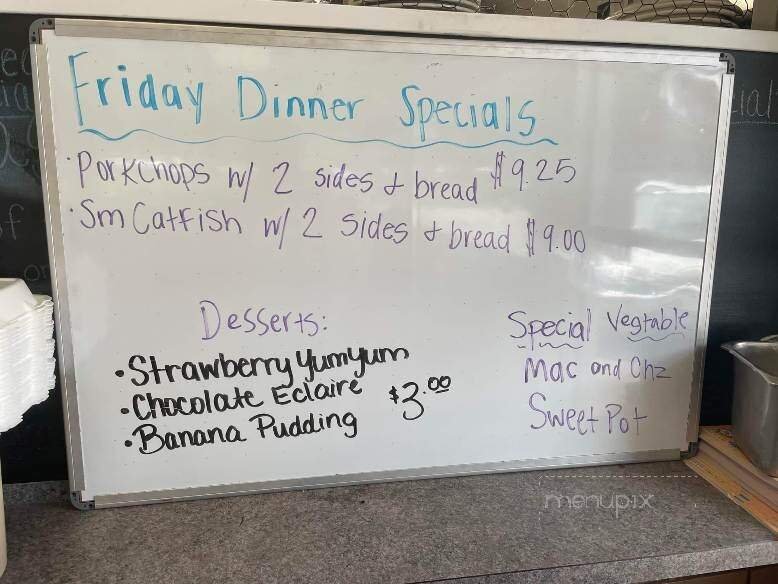 Friday Dinner Specials
·Porkchops w/ 2 sides & bread $9.25
·Sm Catfish w/ 2 sides & bread $9.00
Desserts:
•Strawberry Yumyum
•Chocolate Eclaire $3.00
•Banana Pudding
Special Vegtable
Mac and Chz
Sweet Pot
menupix